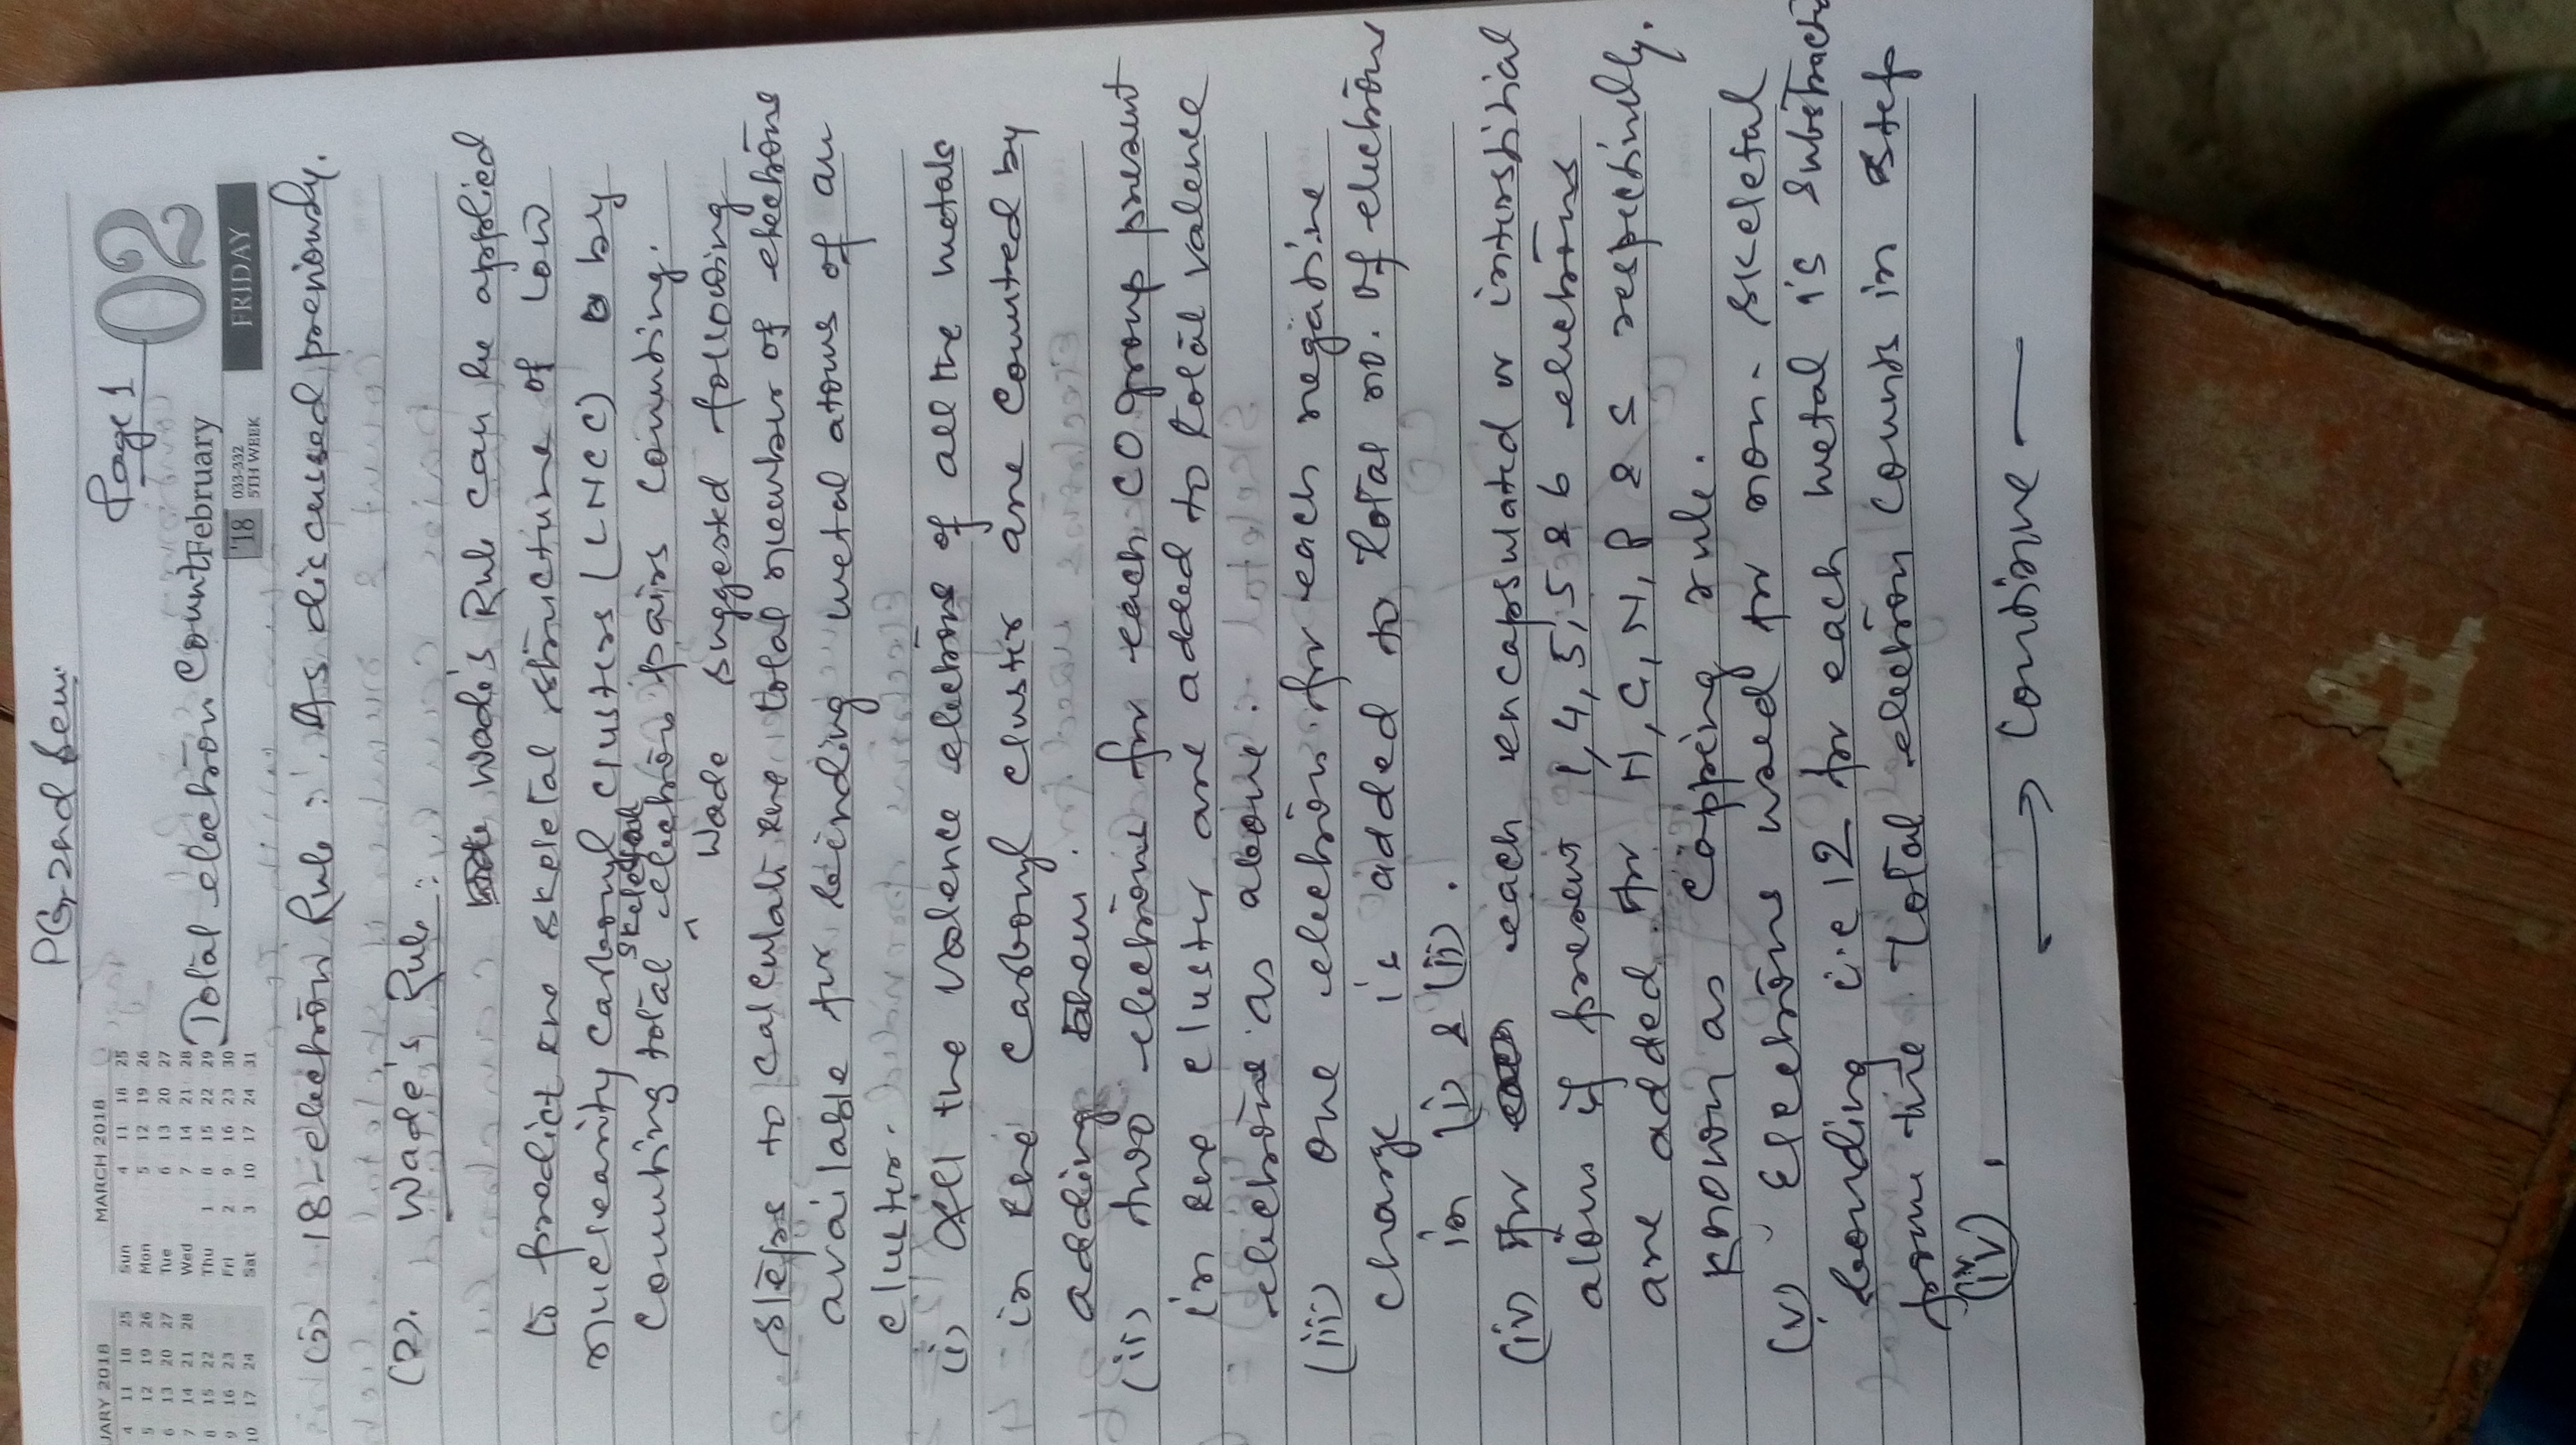 PG 2nd Sem.
Page 1
Total electron Count:
February
02
'18
033-332
5TH WEEK
FRIDAY
UARY 2018
4 11 18 25
5 12 19 26
6 13 20 27
7 14 21 28
8 15 22
9 16 23
10 17 24
MARCH 2018
Sun 4 11 18 25
Mon 5 12 19 26
Tue 6 13 20 27
Wed 7 14 21 28
Thu 1 8 15 22 29
Fri 2 9 16 23 30
Sat 3 10 17 24 31
18-electron Rule :- As discussed previously.
(2). Wade's Rule :-
Wade's Rule can be applied
to predict the skeletal structure of low
nuclearity carbonyl clusters (LNCC) by
counting total skeletal electron pairs counting.
Wade suggested following
steps to calculate the total number of electrons
available for binding metal atoms of an
cluster.
(i) All the valence electrons of all the metals
in the carbonyl cluster are counted by
adding them.
(ii) Two electrons for each CO group present
in the cluster are added to total valence
electrons as above.
(iii) One electron for each negative
charge is added to total no. of electrons
in (i) & (ii).
(iv) For each encapsulated or interstitial
atom if present 1, 4, 5, 5 & 6 electrons
are added for H, C, N, P & S respectively.
known as capping rule.
(v) Electrons used for non-skeletal
bonding i.e 12 for each metal is substracted
from the total electron counts in step
(iv).
→ Continue —